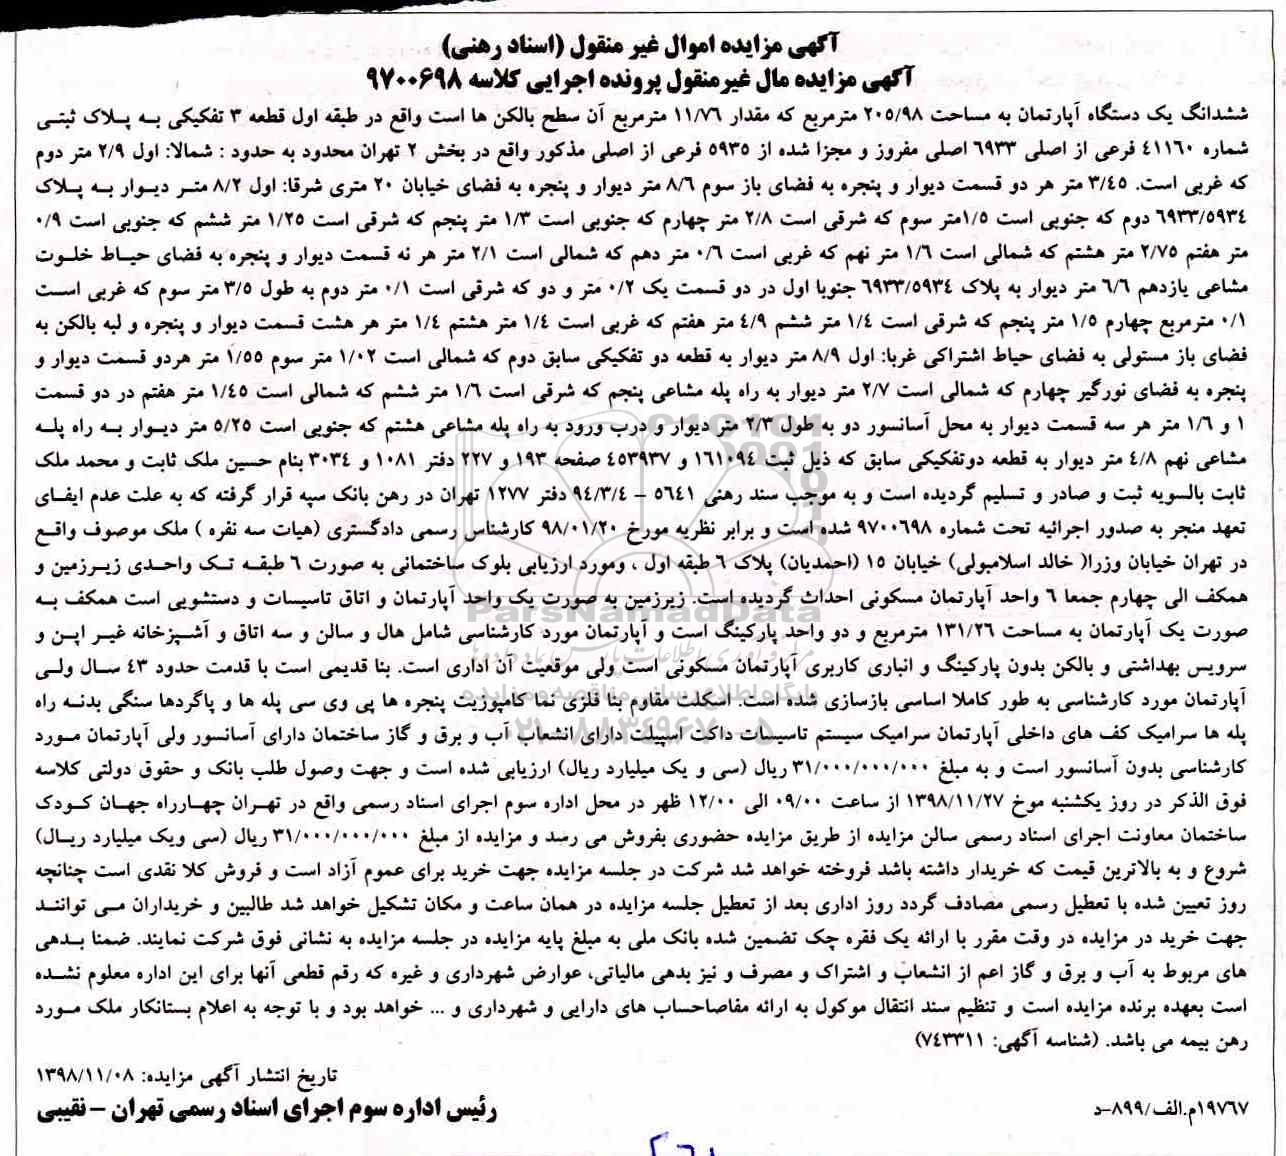 آگهی مزایده اموال غیر منقول (اسناد رهنی)
آگهی مزایده مال غیرمنقول پرونده اجرایی کلاسه ۹۷۰۰۶۹۸
ششدانگ یک دستگاه آپارتمان به مساحت ۲۰۵/۹۸ مترمربع که مقدار ۱۱/۷۶ مترمربع آن سطح بالکن ها است واقع در طبقه اول قطعه ۳ تفکیکی به پلاک ثبتی
شماره ۴۱۱۶۰ فرعی از اصلی ۶۹۳۳ اصلی مفروز و مجزا شده از ۵۹۳۵ فرعی از اصلی مذکور واقع در بخش ۲ تهران محدود به حدود : شمالا: اول ۲/۹ متر دوم
که غربی است. ۳/۴۵ متر هر دو قسمت دیوار و پنجره به فضای باز سوم ۸/۶ متر دیوار و پنجره به فضای خیابان ۲۰ متری شرقا: اول ۸/۲ متر دیوار به پلاک
۶۹۳۳/۵۹۳۴ دوم که جنوبی است ۱/۵متر سوم که شرقی است ۲/۸ متر چهارم که جنوبی است ۱/۳ متر پنجم که شرقی است ۱/۲۵ متر ششم که جنوبی است ۰/۹
متر هفتم ۲/۷۵ متر هشتم که شمالی است ۱/۶ متر نهم که غربی است ۰/۶ متر دهم که شمالی است ۲/۱ متر هر نه قسمت دیوار و پنجره به فضای حیاط خلوت
مشاعی یازدهم ۶/۶ متر دیوار به پلاک ۶۹۳۳/۵۹۳۴ جنوبا اول در دو قسمت یک ۰/۲ متر و دو که شرقی است ۰/۱ متر دوم به طول ۳/۵ متر سوم که غربی است
۰/۱ مترمربع چهارم ۱/۵ متر پنجم که شرقی است ۱/۴ متر ششم ۴/۹ متر هفتم که غربی است ۱/۴ متر هشتم ۱/۴ متر هر هشت قسمت دیوار و پنجره و لبه بالکن به
فضای باز مستولی به فضای حیاط اشتراکی غربا: اول ۸/۹ متر دیوار به قطعه دو تفکیکی سابق دوم که شمالی است ۱/۰۲ متر سوم ۱/۵۵ متر هردو قسمت دیوار و
پنجره به فضای نورگیر چهارم که شمالی است ۲/۷ متر دیوار به راه پله مشاعی پنجم که شرقی است ۱/۶ متر ششم که شمالی است ۱/۴۵ متر هفتم در دو قسمت
۱ و ۱/۶ متر هر سه قسمت دیوار به محل آسانسور دو به طول ۲/۳ متر دیوار و درب ورود به راه پله مشاعی هشتم که جنوبی است ۵/۲۵ متر دیوار به راه پله
مشاعی نهم ۴/۸ متر دیوار به قطعه دوتفکیکی سابق که ذیل ثبت ۱۶۱۰۹۴ و ۴۵۳۹۳۷ صفحه ۱۹۳ و ۲۲۷ دفتر ۱۰۸۱ و ۳۰۳۴ بنام حسین ملک ثابت و محمد ملک
ثابت بالسویه ثبت و صادر و تسلیم گردیده است و به موجب سند رهنی ۵۶۴۱ – ۹۴/۳/۴ دفتر ۱۲۷۷ تهران در رهن بانک سپه قرار گرفته که به علت عدم ایفای
تعهد منجر به صدور اجرائیه تحت شماره ۹۷۰۰۶۹۸ شده است و برابر نظریه مورخ ۹۸/۰۱/۲۰ کارشناس رسمی دادگستری (هیات سه نفره ) ملک موصوف واقع
در تهران خیابان وزرا( خالد اسلامبولی) خیابان ۱۵ (احمدیان) پلاک ۶ طبقه اول ، ومورد ارزیابی بلوک ساختمانی به صورت ۶ طبقه تک واحدی زیرزمین و
همکف الی چهارم جمعا ۶ واحد آپارتمان مسکونی احداث گردیده است. زیرزمین به صورت یک واحد آپارتمان و اتاق تاسیسات و دستشویی است همکف به
صورت یک آپارتمان به مساحت ۱۳۱/۲۶ مترمربع و دو واحد پارکینگ است و آپارتمان مورد کارشناسی شامل هال و سالن و سه اتاق و آشپزخانه غیر اپن و
سرویس بهداشتی و بالکن بدون پارکینگ و انباری کاربری آپارتمان مسکونی است ولی موقعیت آن اداری است. بنا قدیمی است با قدمت حدود ۴۳ سال ولی
آپارتمان مورد کارشناسی به طور کاملا اساسی بازسازی شده است. اسکلت مقاوم بنا فلزی نما کامپوزیت پنجره ها پی وی سی پله ها و پاگردها سنگی بدنه راه
پله ها سرامیک کف های داخلی آپارتمان سرامیک سیستم تاسیسات داکت اسپیلت دارای انشعاب آب و برق و گاز ساختمان دارای آسانسور ولی آپارتمان مورد
کارشناسی بدون آسانسور است و به مبلغ ۳۱/۰۰۰/۰۰۰/۰۰۰ ریال (سی و یک میلیارد ریال) ارزیابی شده است و جهت وصول طلب بانک و حقوق دولتی کلاسه
فوق الذکر در روز یکشنبه موخ ۱۳۹۸/۱۱/۲۷ از ساعت ۰۹/۰۰ الی ۱۲/۰۰ ظهر در محل اداره سوم اجرای اسناد رسمی واقع در تهران چهارراه جهان کودک
ساختمان معاونت اجرای اسناد رسمی سالن مزایده از طریق مزایده حضوری بفروش می رسد و مزایده از مبلغ ۳۱/۰۰۰/۰۰۰/۰۰۰ ریال (سی ویک میلیارد ریال)
شروع و به بالاترین قیمت که خریدار داشته باشد فروخته خواهد شد شرکت در جلسه مزایده جهت خرید برای عموم آزاد است و فروش کلا نقدی است چنانچه
روز تعیین شده با تعطیل رسمی مصادف گردد روز اداری بعد از تعطیل جلسه مزایده در همان ساعت و مکان تشکیل خواهد شد طالبین و خریداران می توانند
جهت خرید در مزایده در وقت مقرر با ارائه یک فقره چک تضمین شده بانک ملی به مبلغ پایه مزایده در جلسه مزایده به نشانی فوق شرکت نمایند. ضمنا بدهی
های مربوط به آب و برق و گاز اعم از انشعاب و اشتراک و مصرف و نیز بدهی مالیاتی، عوارض شهرداری و غیره که رقم قطعی آنها برای این اداره معلوم نشده
است بعهده برنده مزایده است و تنظیم سند انتقال موکول به ارائه مفاصاحساب های دارایی و شهرداری و ... خواهد بود و با توجه به اعلام بستانکار ملک مورد
رهن بیمه می باشد. (شناسه آگهی: ۷۴۳۳۱۱)
تاریخ انتشار آگهی مزایده: ۱۳۹۸/۱۱/۰۸
رئیس اداره سوم اجرای اسناد رسمی تهران – نقیبی
۱۹۷۶۷م.الف/۸۹۹–د
ParsNamadData
پایگاه اطلاع رسانی مناقصه و مزایده
۰۲۱-۸۸۳۴۹۶۷۰-۵